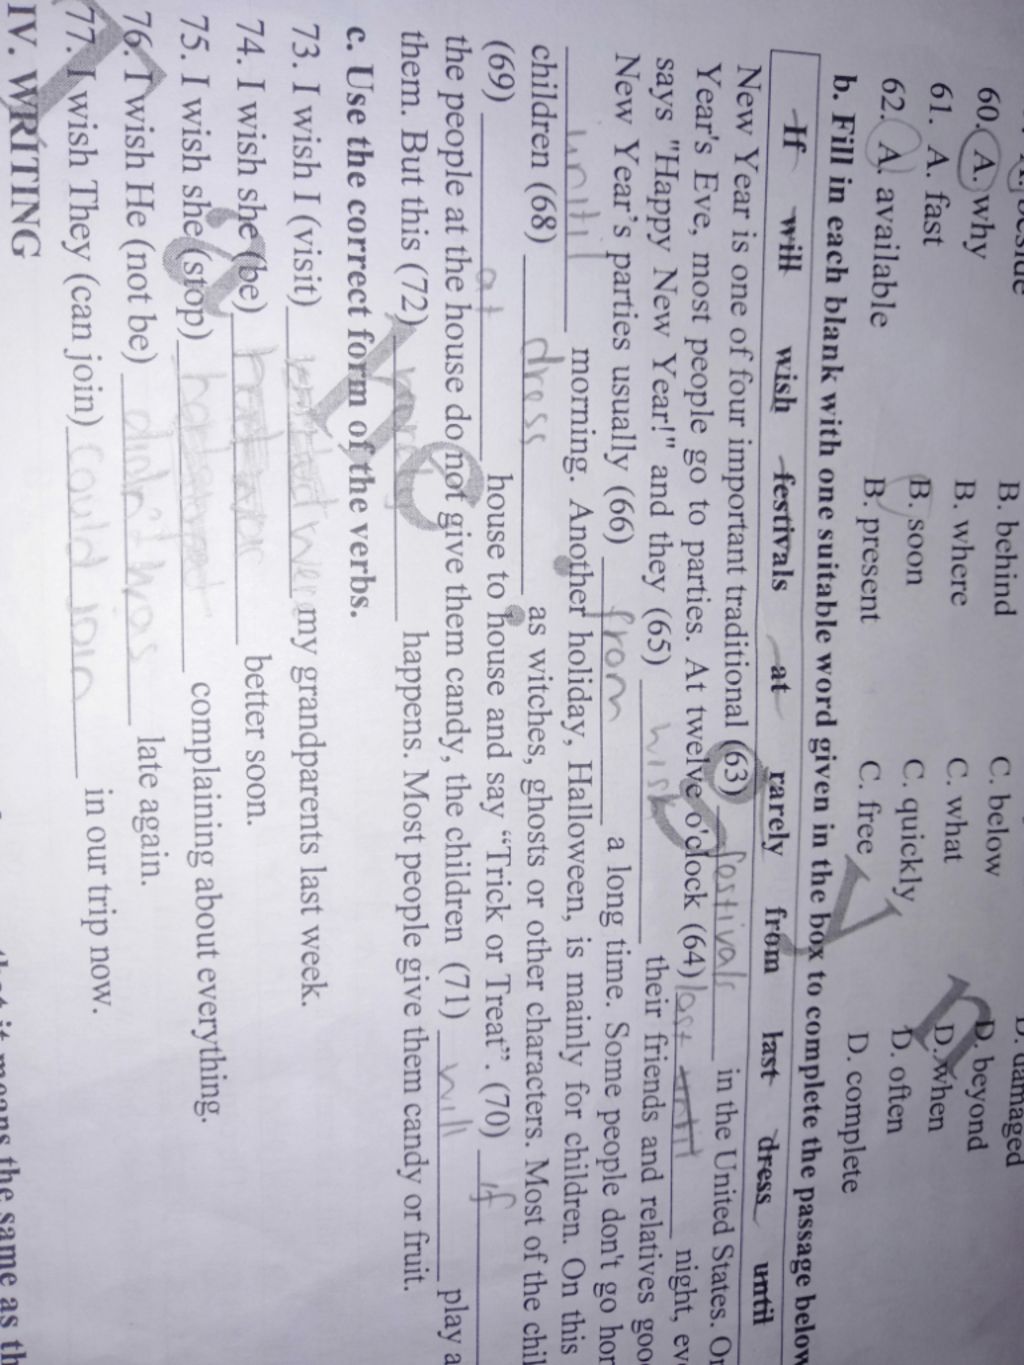 beside
B. behind
C. below
D. damaged
60. A. why
B. where
C. what
D. beyond
61. A. fast
B. soon
C. quickly
D. when
62. A. available
B. present
C. free
D. often
D. complete
b. Fill in each blank with one suitable word given in the box to complete the passage below
If will wish festivals at rarely from last dress until
New Year is one of four important traditional (63) festivals in the United States. On
Year's Eve, most people go to parties. At twelve o'clock (64) last until night, eve
says "Happy New Year!" and they (65) wish their friends and relatives goo
New Year's parties usually (66) from a long time. Some people don't go hom
until morning. Another holiday, Halloween, is mainly for children. On this
children (68) dress as witches, ghosts or other characters. Most of the chil
(69) at house to house and say "Trick or Treat". (70) if
the people at the house do not give them candy, the children (71) will play a
them. But this (72) happens. Most people give them candy or fruit.
c. Use the correct form of the verbs.
73. I wish I (visit) my grandparents last week.
74. I wish she (be) better soon.
75. I wish she (stop) complaining about everything.
76. I wish He (not be) didn't was late again.
77. I wish They (can join) could join in our trip now.
IV. WRITING
that it means the same as th